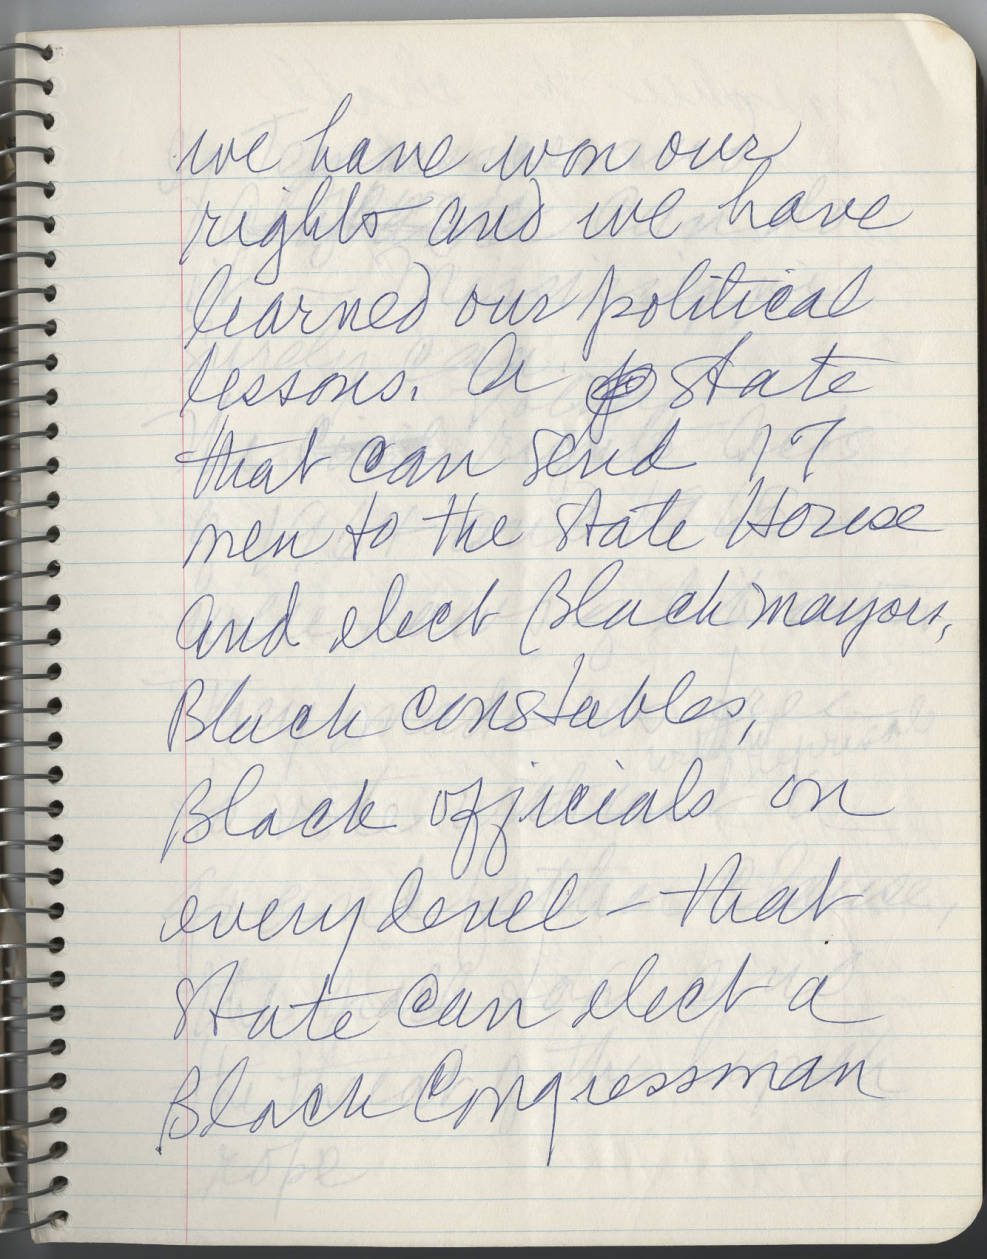 we have won our
rights and we have
learned our political
lessons. A state
that can send 17
men to the state House
and elect Black mayors,
Black constables,
Black officials on
every level - that
state can elect a
Black Congressman